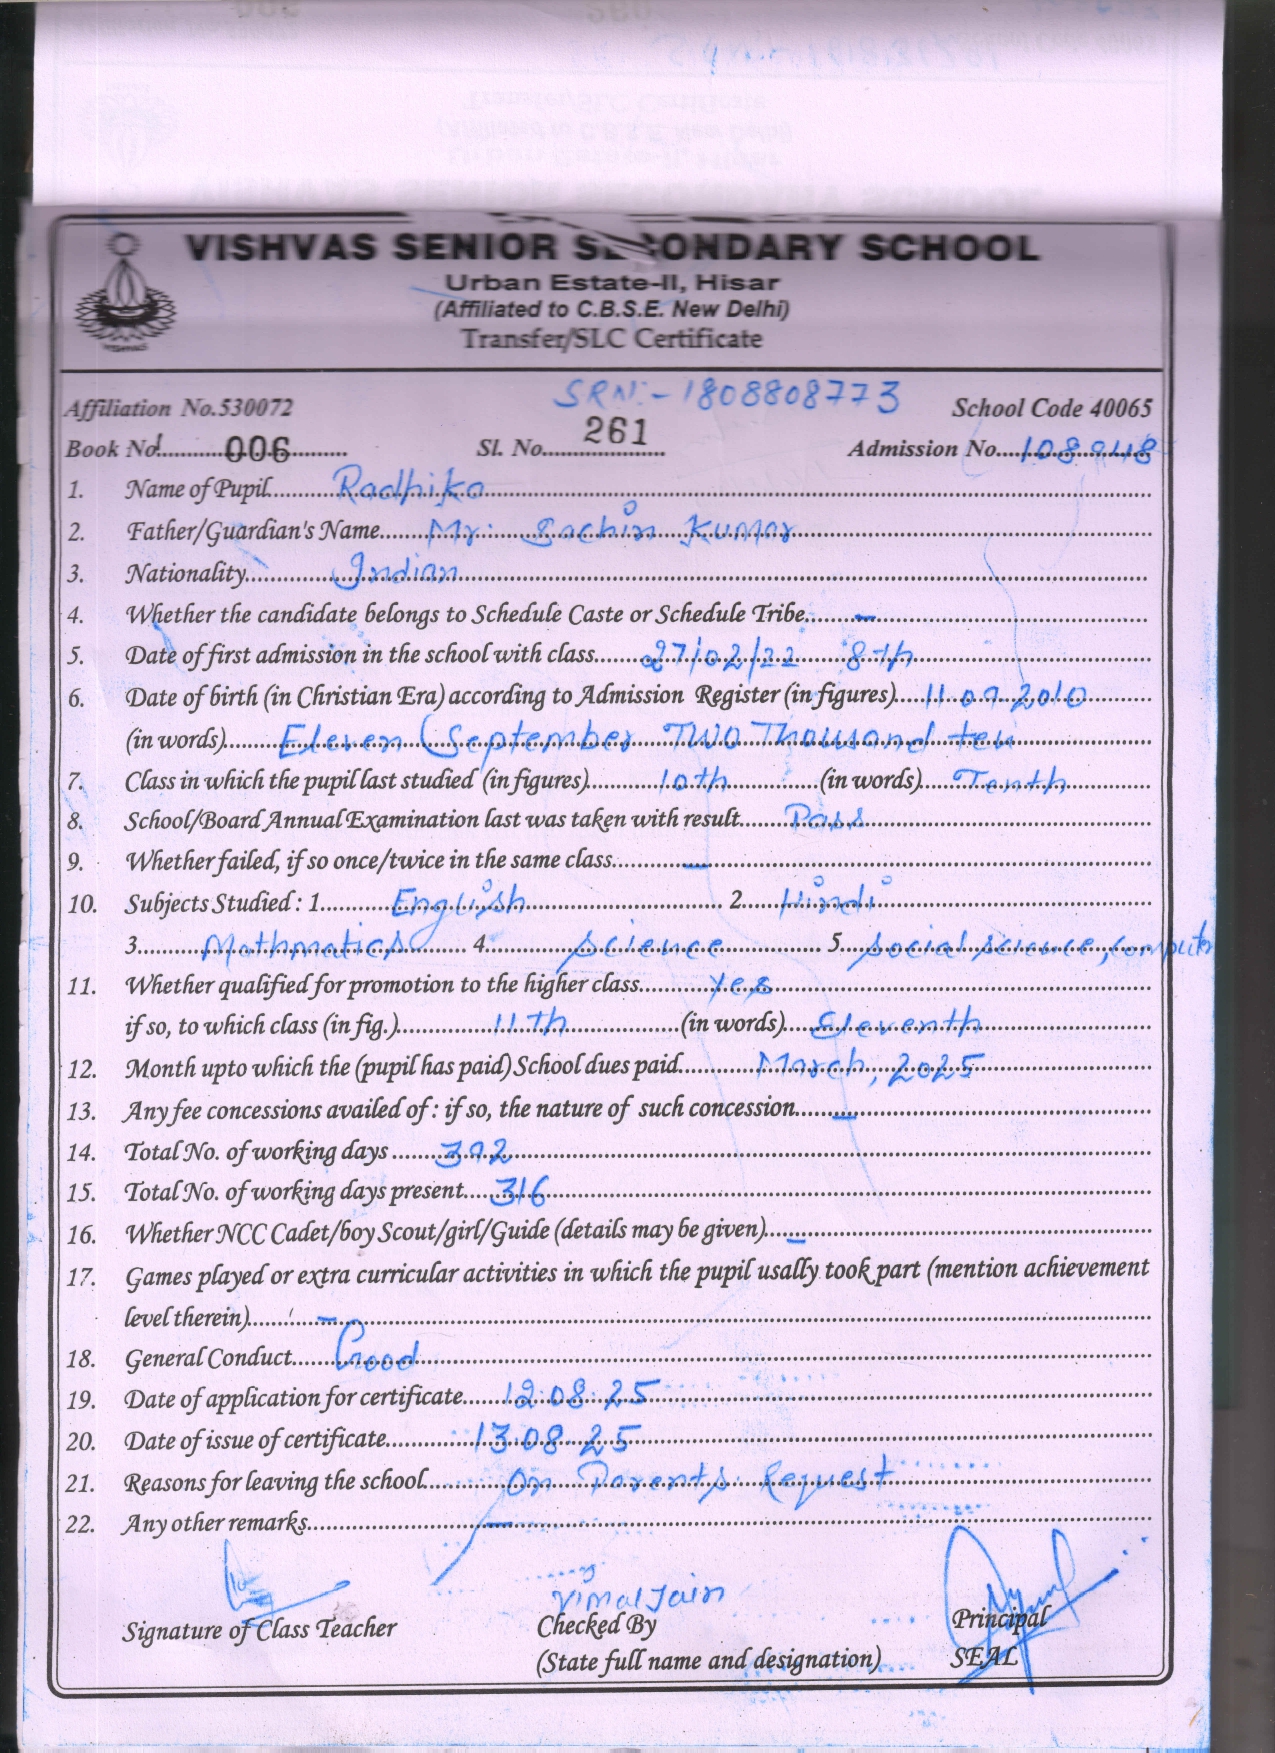 VISHVAS SENIOR SECONDARY SCHOOL
Urban Estate-II, Hisar
(Affiliated to C.B.S.E. New Delhi)
Transfer/SLC Certificate
VISHVAS
SRN:- 1808808773
Affiliation No.530072 School Code 40065
Book No. 006 Sl. No. 261 Admission No. 108948
1. Name of Pupil Radhika
2. Father/Guardian's Name Mr. Sachin Kumar
3. Nationality Indian
4. Whether the candidate belongs to Schedule Caste or Schedule Tribe –
5. Date of first admission in the school with class 27/02/22 8th
6. Date of birth (in Christian Era) according to Admission Register (in figures) 11.09.2010
(in words) Eleven September Two Thousand ten
7. Class in which the pupil last studied (in figures) 10th (in words) Tenth
8. School/Board Annual Examination last was taken with result Pass
9. Whether failed, if so once/twice in the same class –
10. Subjects Studied : 1. English 2. Hindi
3. Mathmatics 4. Science 5. Social science, computer
11. Whether qualified for promotion to the higher class yes
if so, to which class (in fig.) 11th (in words) Eleventh
12. Month upto which the (pupil has paid) School dues paid March, 2025
13. Any fee concessions availed of : if so, the nature of such concession –
14. Total No. of working days 392
15. Total No. of working days present 316
16. Whether NCC Cadet/boy Scout/girl/Guide (details may be given) –
17. Games played or extra curricular activities in which the pupil usally took part (mention achievement
level therein) –
18. General Conduct Good
19. Date of application for certificate 12.08.25
20. Date of issue of certificate 13.08.25
21. Reasons for leaving the school On Parents Request
22. Any other remarks –
Vimal Jain
Signature of Class Teacher Checked By Principal
(State full name and designation) SEAL